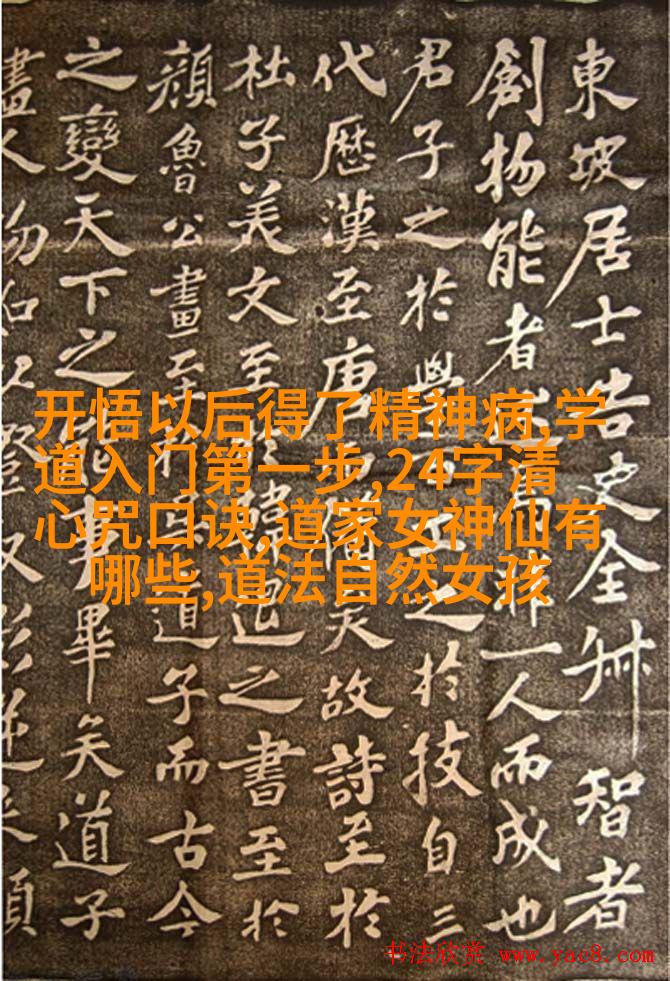 東坡居士告史全叔智者
創物能者述焉非一人而成也
君子之於學百工之於技自三
代歷漢至唐而備矣故詩至於
杜子美文至於韓退之書至於
顏魯公畫至於吳道子而古今
之變天下之能事畢矣道子
畫人物如以燈取影逆來順
开悟以后得了精神病,学
道入门第一步,24字清
心咒口诀,道家女神仙有
哪些,道法自然女孩
书法欣赏 www.yac8.com